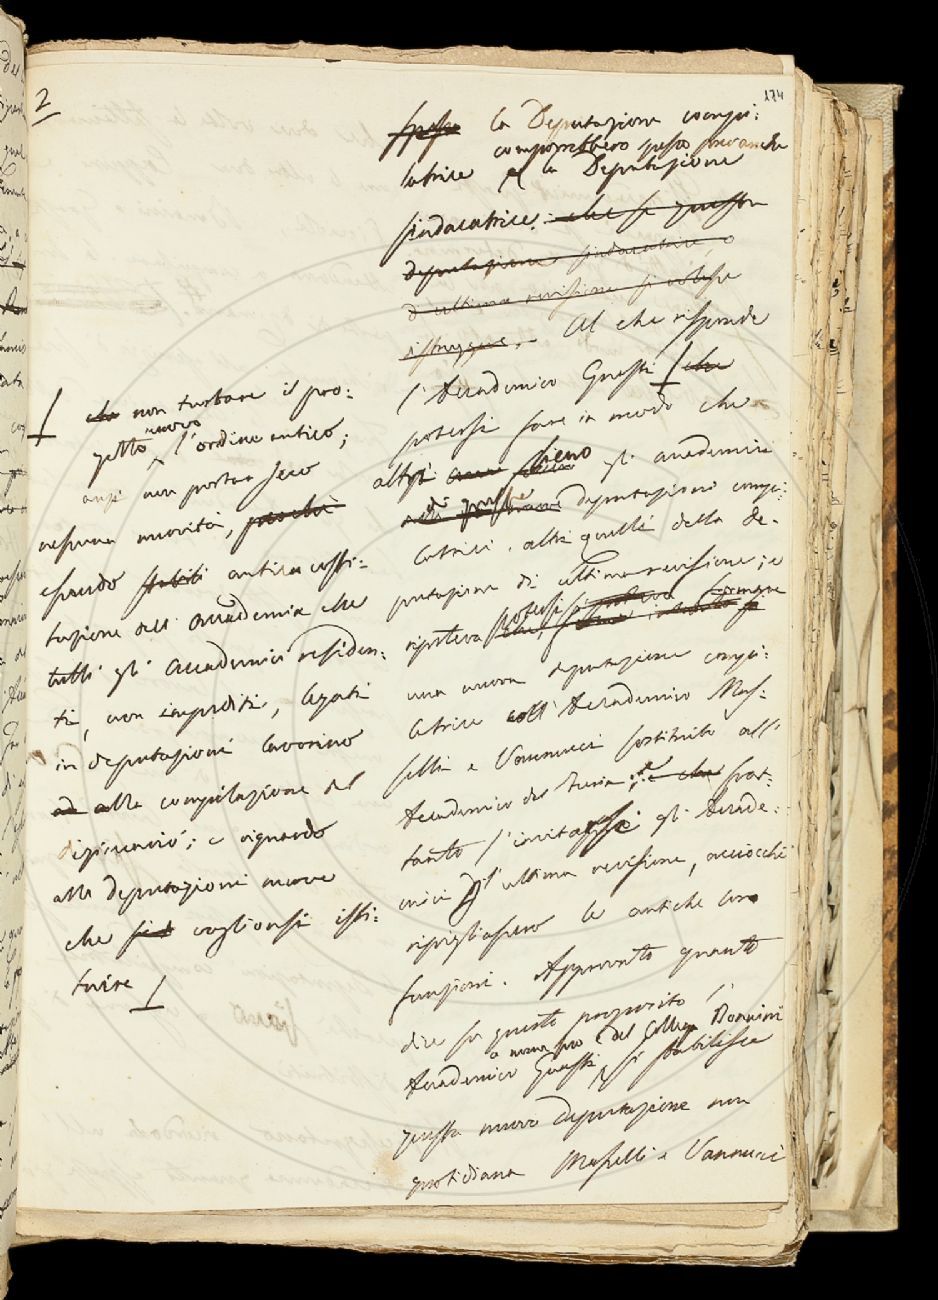 2
174
spesso la Deputazione compi:
comporrebbero spesso
latrice e la Deputazione
sindacatrice. che se questa
deputazione sindacatrice o
d'ultima revisione si volesse
. Al che risponde
l'Accademico Guasti che
potersi fare in modo che
altri sieno gli accademici
deputazioni compi:
latrici, altri quelli della de:
putazione di ultima revisione; e
ripeteva potersi formare
una nuova deputazione compi:
latrice coll'Accademico Mas:
selli e Vannucci sostituito all'
Accademico del Furia; e che frat:
tanto s'invitasse gli Accade:
mici d'ultima revisione, acciocchè
ripigliassero le antiche loro
funzioni. Approvato quanto
dice su questo proposito l'
a nome suo e del Collega Bonaini
Accademico Guasti, si stabilisce
questa nuova deputazione non
quotidiana Masselli e Vannucci
che non turbare il pro:
nuovo
getto l'ordine antico;
anzi non portar seco
nessuna novità, perchè
essendo stabili antica costi:
tuzione dell'Accademia che
tutti gli Accademici residen:
ti, non impediti, legati
in deputazioni lavorino
ad alla compilazione del
dizionario; e riguardo
alle deputazioni nuove
che si vogliono isti:
tuire